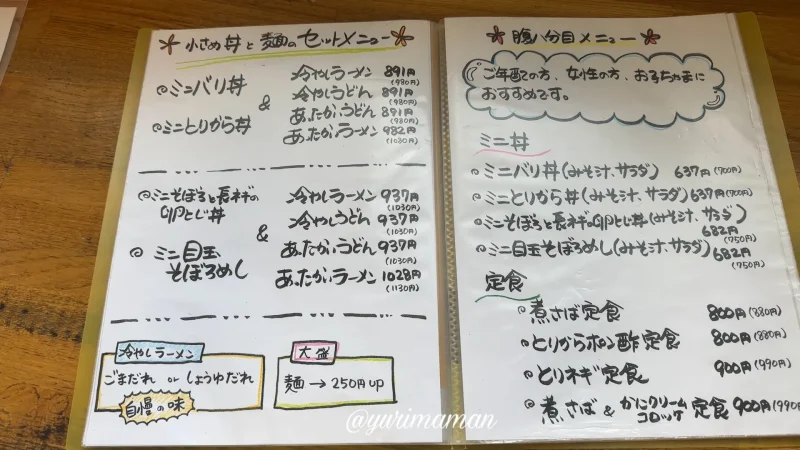 小さめ丼と麺のセットメニュー
◎ミニバリ丼
◎ミニとりから丼
&
冷やしラーメン 891円
(980円)
冷やしうどん 891円
(980円)
あったかうどん 891円
(980円)
あったかいラーメン 982円
(1080円)
◎ミニそぼろと長ネギの
卵とじ丼
◎ミニ目玉
そぼろめし
&
冷やしラーメン 937円
(1030円)
冷やしうどん 937円
(1030円)
あったかうどん 937円
(1030円)
あったかいラーメン 1028円
(1130円)
冷やしラーメン
ごまだれ or しょうゆだれ
自慢の味
大盛
麺→250円up
腹八分目メニュー
ご年配の方、女性の方、お子ちゃまに
おすすめです。
ミニ丼
◎ミニバリ丼(みそ汁、サラダ) 637円(700円)
◎ミニとりから丼(みそ汁、サラダ) 637円(700円)
◎ミニそぼろと長ネギの卵とじ丼(みそ汁、サラダ)
682円
(750円)
◎ミニ目玉そぼろめし(みそ汁、サラダ) 682円
(750円)
定食
◎煮さば定食 800円(880円)
◎とりからポン酢定食 800円(880円)
◎とりネギ定食 900円(990円)
◎煮さば&かにクリームコロッケ定食 900円(990円)
@yurimaman